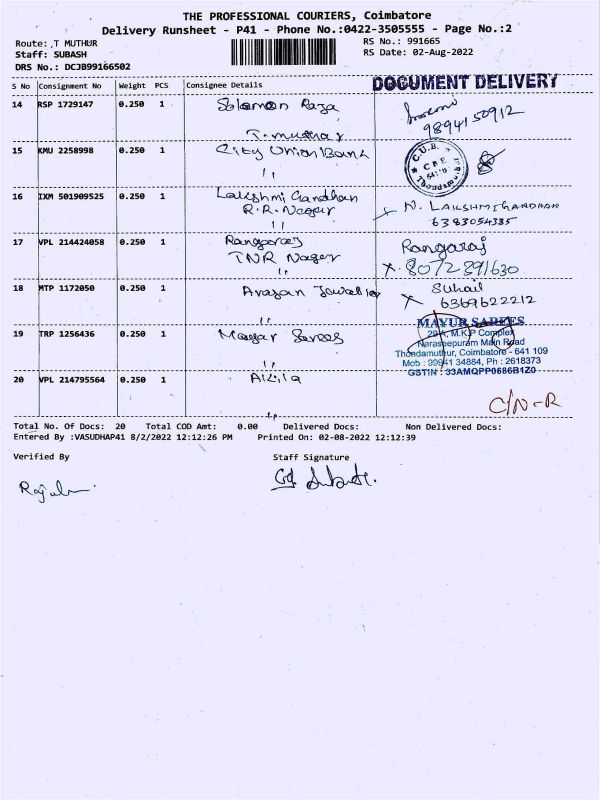 THE PROFESSIONAL COURIERS, Coimbatore
Delivery Runsheet - P41 - Phone No.:0422-3505555 - Page No.:2
Route: ,T MUTHUR
RS No.: 991665
Staff: SUBASH
RS Date: 02-Aug-2022
DRS No.: DCJB99166502
DOCUMENT DELIVERY
S No Consignment No Weight PCS Consignee Details
14 RSP 1729147 0.250 1 Solomon Raja
9894150912
T. muthur
15 KMU 2258998 0.250 1 City Union Bank
C.U.B. CBE Thondamuthur
16 IXM 501909525 0.250 1 Lakshmi Gandhan
R.R. Nagar
N. LAKSHMIGANDHAN
6383054385
17 VPL 214424058 0.250 1 Rangaraj
TNR Nagar
Rangaraj
8072891630
18 MTP 1172050 0.250 1
Suhail
6369622212
19 TRP 1256436 0.250 1
MAYUR SAREES
29A, M.K.P Complex
Naraseepuram Main Road
Thondamuthur, Coimbatore - 641 109
Mob : 99941 34884, Ph : 2618373
GSTIN : 33AMQPP0686B1Z0
20 VPL 214795564 0.250 1 Akila
C/N-R
Total No. Of Docs: 20 Total COD Amt: 0.00 Delivered Docs: Non Delivered Docs:
Entered By :VASUDHAP41 8/2/2022 12:12:26 PM Printed On: 02-08-2022 12:12:39
Verified By Staff Signature